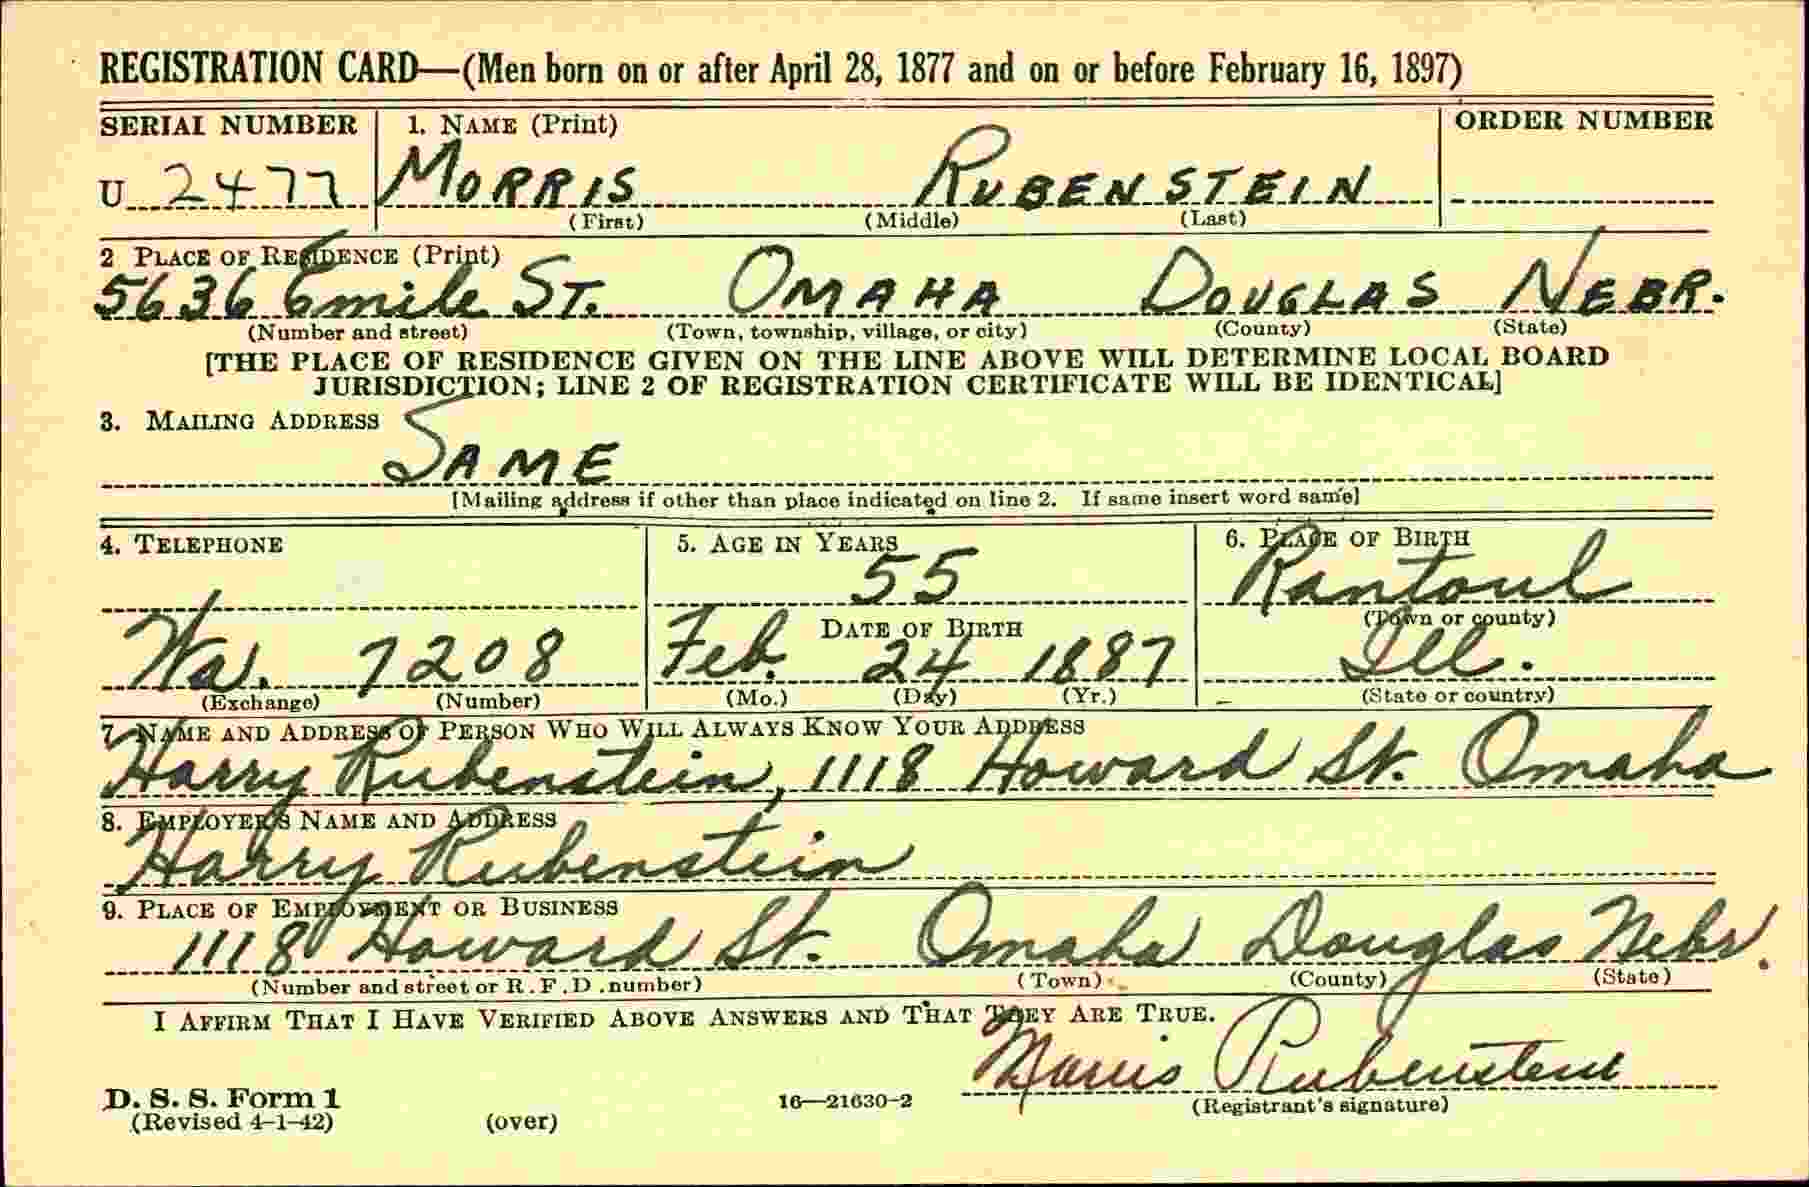 REGISTRATION CARD—(Men born on or after April 28, 1877 and on or before February 16, 1897)
SERIAL NUMBER 1. NAME (Print) ORDER NUMBER
U 2477 MORRIS RUBENSTEIN
(First) (Middle) (Last)
2 PLACE OF RESIDENCE (Print)
5636 Emile ST. OMAHA DOUGLAS NEBR.
(Number and street) (Town, township, village, or city) (County) (State)
[THE PLACE OF RESIDENCE GIVEN ON THE LINE ABOVE WILL DETERMINE LOCAL BOARD
JURISDICTION; LINE 2 OF REGISTRATION CERTIFICATE WILL BE IDENTICAL]
3. MAILING ADDRESS
SAME
[Mailing address if other than place indicated on line 2. If same insert word same]
4. TELEPHONE 5. AGE IN YEARS 6. PLACE OF BIRTH
55 Rantoul
DATE OF BIRTH (Town or county)
Wa. 7208 Feb. 24 1887 Ill.
(Exchange) (Number) (Mo.) (Day) (Yr.) (State or country)
7. NAME AND ADDRESS OF PERSON WHO WILL ALWAYS KNOW YOUR ADDRESS
Harry Rubenstein, 1118 Howard St. Omaha
8. EMPLOYER'S NAME AND ADDRESS
Harry Rubenstein
9. PLACE OF EMPLOYMENT OR BUSINESS
1118 Howard St. Omaha Douglas Nebr.
(Number and street or R.F.D. number) (Town) (County) (State)
I AFFIRM THAT I HAVE VERIFIED ABOVE ANSWERS AND THAT THEY ARE TRUE.
Morris Rubenstein
D. S. S. Form 1 16—21630-2 (Registrant's signature)
(Revised 4-1-42) (over)